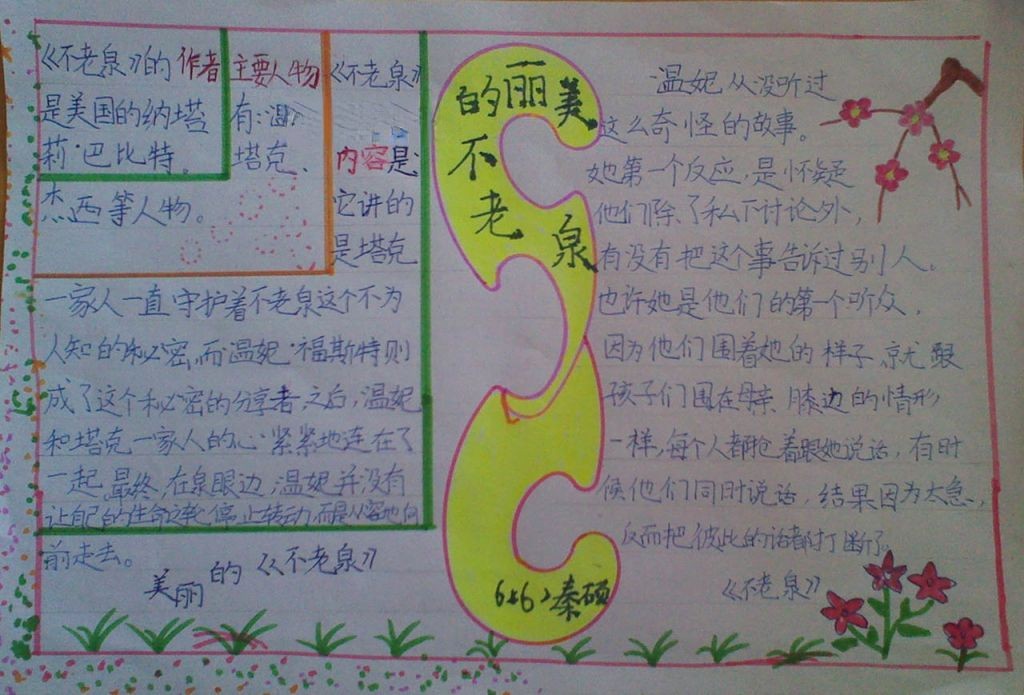 《不老泉》的作者
是美国的纳塔
莉·巴比特。
主要人物
有:温
塔克、
杰西等人物。
《不老泉》
内容是:
它讲的
是塔克
一家人一直守护着不老泉这个不为
人知的秘密,而温妮·福斯特则
成了这个秘密的分享者,之后,温妮
和塔克一家人的心紧紧地连在了
一起,最终,在泉眼边,温妮并没有
让自己的生命之轮停止转动,而是从容地向
前走去。
美丽的《不老泉》
美丽的
不老泉
秦硕
温妮从没听过
这么奇怪的故事。
她第一个反应,是怀疑
他们除了私下讨论外,
有没有把这个事告诉过别人。
也许她是他们的第一个听众,
因为他们围着她的样子,就跟
孩子们围在母亲膝边的情形
一样,每个人都抢着跟她说话,有时
候他们同时说话,结果因为太急,
反而把彼此的话都打断了。
《不老泉》